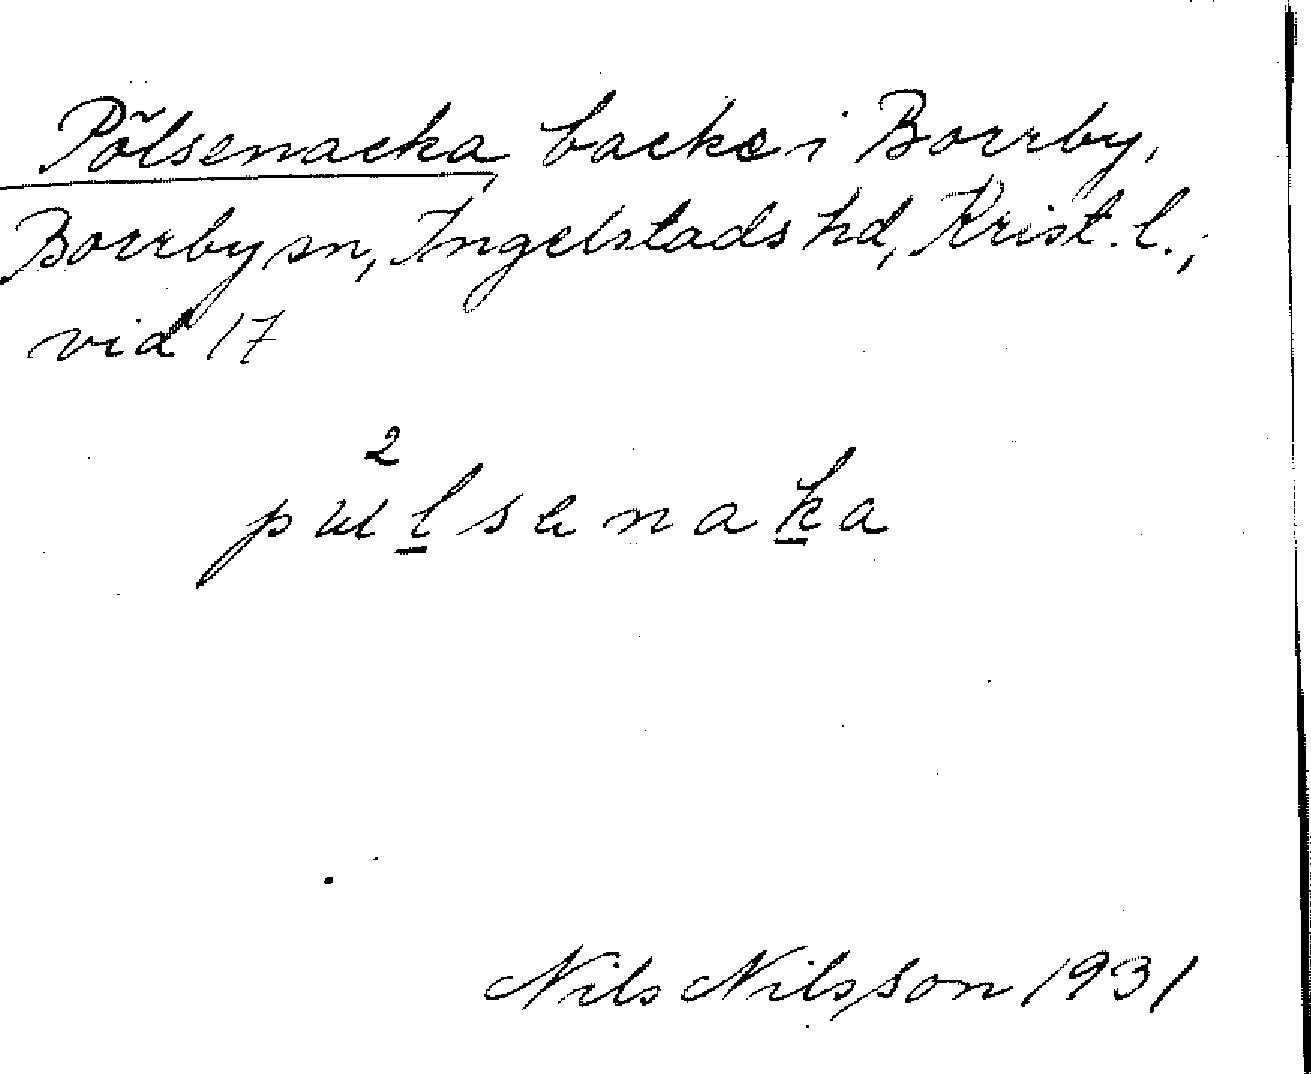 Põlsenacka, backe i Borrby,
Borrby sn, Ingelstads hd, Krist. l.,
vid 17
2
Nils Nilsson 1931